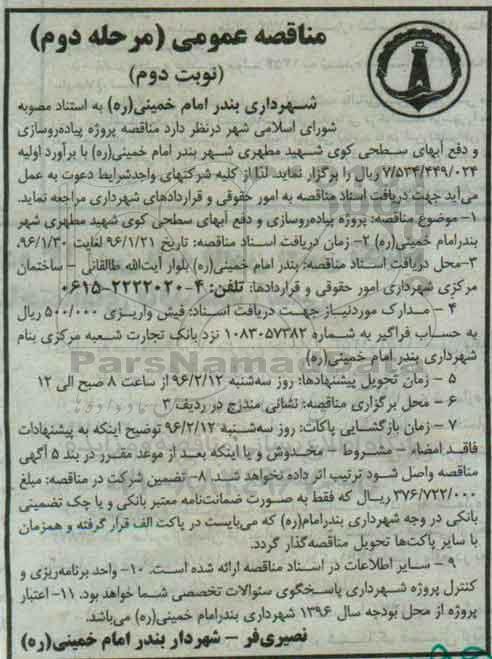 مناقصه عمومی (مرحله دوم)
(نوبت دوم)
شهرداری بندر امام خمینی(ره) به استناد مصوبه
شورای اسلامی شهر درنظر دارد مناقصه پروژه پیاده‌روسازی
و دفع آبهای سطحی کوی شهید مطهری شهر بندر امام خمینی(ره) با برآورد اولیه
۷/۵۳۴/۴۴۹/۰۲۴ ریال را برگزار نماید. لذا از کلیه شرکتهای واجدشرایط دعوت به عمل
می‌آید جهت دریافت اسناد مناقصه به امور حقوقی و قراردادهای شهرداری مراجعه نماید.
۱- موضوع مناقصه: پروژه پیاده‌روسازی و دفع آبهای سطحی کوی شهید مطهری شهر
بندرامام خمینی(ره) ۲- زمان دریافت اسناد مناقصه: تاریخ ۹۶/۱/۲۱ لغایت ۹۶/۱/۳۰.
۳-محل دریافت اسناد مناقصه: بندر امام خمینی(ره) بلوار آیت‌الله طالقانی - ساختمان
مرکزی شهرداری امور حقوقی و قراردادها: تلفن: ۴-۲۲۲۲۰۲۰-۰۶۱۵
۴ - مدارک موردنیاز جهت دریافت اسناد: فیش واریزی ۵۰۰/۰۰۰ ریال
به حساب فراگیر به شماره ۱۰۸۳۰۵۷۳۸۲ نزد بانک تجارت شعبه مرکزی بنام
شهرداری بندر امام خمینی(ره)
ParsNamadData
۵ - زمان تحویل پیشنهادها: روز سه‌شنبه ۹۶/۲/۱۲ از ساعت ۸ صبح الی ۱۲
۶ - محل برگزاری مناقصه: نشانی مندرج در ردیف ۳
۷ - زمان بازگشایی پاکات: روز سه‌شنبه ۹۶/۲/۱۲ توضیح اینکه به پیشنهادات
فاقد امضاء - مشروط - مخدوش و یا اینکه بعد از موعد مقرر در بند ۵ آگهی
مناقصه واصل شود ترتیب اثر داده نخواهد شد. ۸- تضمین شرکت در مناقصه: مبلغ
۳۷۶/۷۲۲/۰۰۰ ریال که فقط به صورت ضمانت‌نامه معتبر بانکی و یا چک تضمینی
بانکی در وجه شهرداری بندرامام(ره) که می‌بایست در پاکت الف قرار گرفته و همزمان
با سایر پاکت‌ها تحویل مناقصه‌گذار گردد.
۹ - سایر اطلاعات در اسناد مناقصه ارائه شده است. ۱۰- واحد برنامه‌ریزی و
کنترل پروژه شهرداری پاسخگوی سئوالات تخصصی شما خواهد بود. ۱۱- اعتبار
پروژه از محل بودجه سال ۱۳۹۶ شهرداری بندرامام خمینی(ره) می‌باشد.
نصیری‌فر - شهردار بندر امام خمینی(ره)